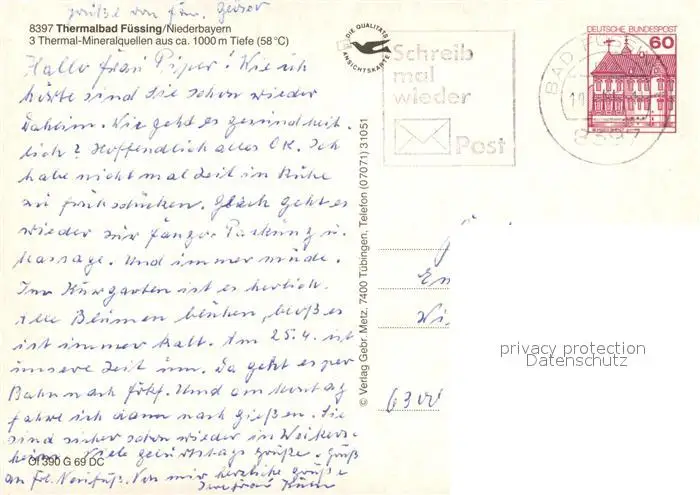 Grüße von Fam. Geiser
8397 Thermalbad Füssing/Niederbayern
3 Thermal-Mineralquellen aus ca. 1000 m Tiefe (58 °C)
Hallo Frau Piper! Wie ich
hörte sind Sie schon wieder
Daheim. Wie geht es gesundheit-
lich? Hoffendlich alles OK. Ich
habe nicht mal Zeit in Ruhe
zu frühstücken. Gleich geht es
wieder zur Fango Packung u.
Massage. Und immer müde.
Im Kurgarten ist es herlich.
Alle Blumen blühen, bloß es
ist immer kalt. Am 25.4. ist
unsere Zeit um. Da geht es per
Bahn nach Frkf. Und am Montag
fahre ich dann nach Gießen. Sie
sind sicher schon wieder in Weikers-
heim. Viele geburtstags Grüße. Gruß
an Frl. Von mir herzliche Grüße
Ihre Frau
Of 390 G 69 DC
DIE QUALITÄTS
ANSICHTSKARTE
© Verlag Gebr. Metz, 7400 Tübingen, Telefon (07071) 31051
Schreib
mal
wieder
Post
DEUTSCHE BUNDESPOST
60
BAD FÜSSING
8397
6300
privacy protection
Datenschutz